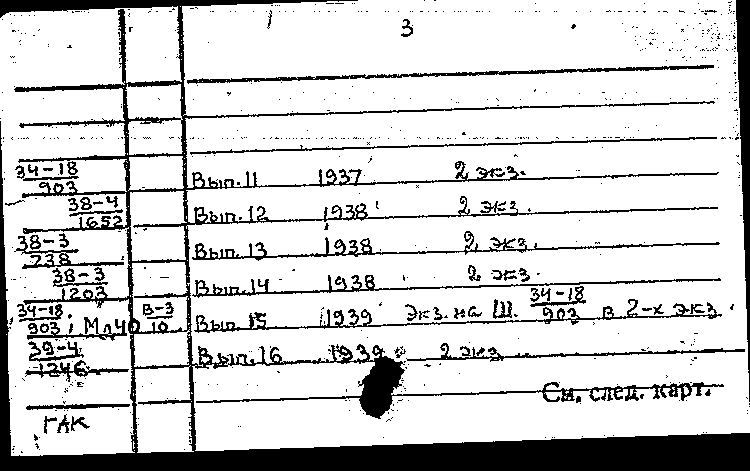 3
34-18
903 Вып. 11 1937 2 экз.
38-4
1652 Вып. 12 1938 2 экз.
38-3
738 Вып. 13 1938 2 экз.
38-3
1203 Вып. 14 1938 2 экз.
34-18 В-3 34-18
903; Мл40 10 Вып. 15 1939 Экз. на Ш. 903 в 2-х экз.
39-4
1246 Вып. 16 1939 2 экз
См. след. карт.
ГАК